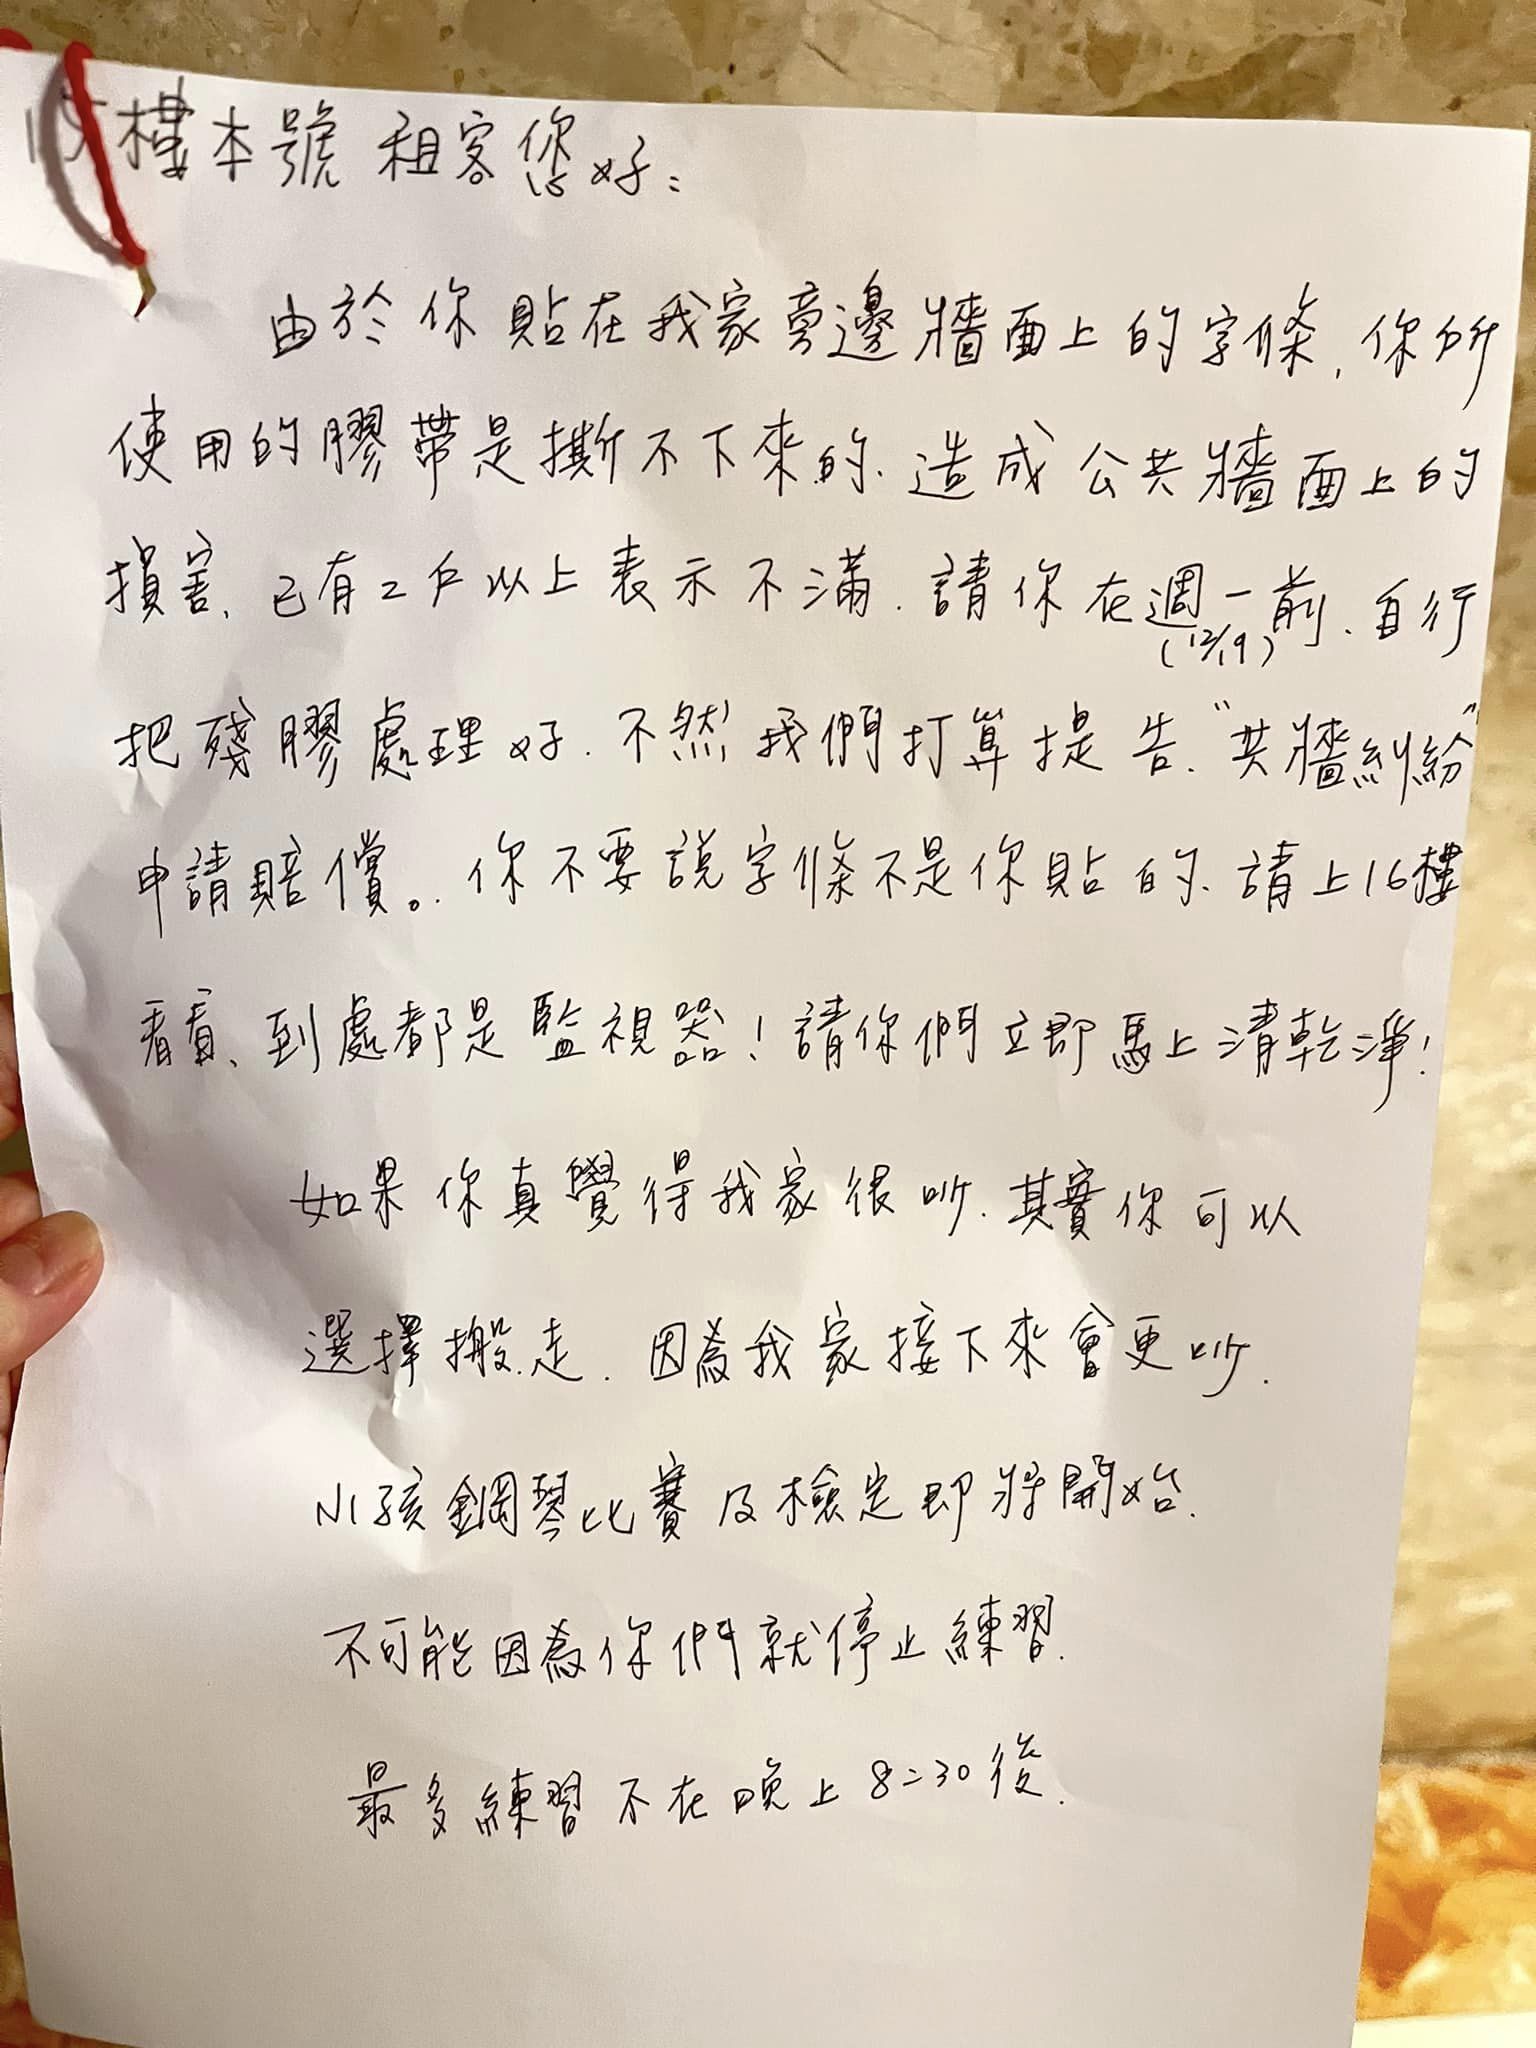 樓本號租客您好：
由於你貼在我家旁邊牆面上的字條，你所
使用的膠帶是撕不下來的、造成公共牆面上的
損害、已有2戶以上表示不滿、請你在週一前、自行
(12/19)
把殘膠處理好、不然我們打算提告、"共牆糾紛"
申請賠償。、你不要說字條不是你貼的、請上16樓
看看、到處都是監視器！請你們立即馬上清乾淨！
如果你真覺得我家很吵、其實你可以
選擇搬走、因為我家接下來會更吵、
小孩鋼琴比賽及檢定即將開始、
不可能因為你們就停止練習、
最多練習不在晚上8:30後、